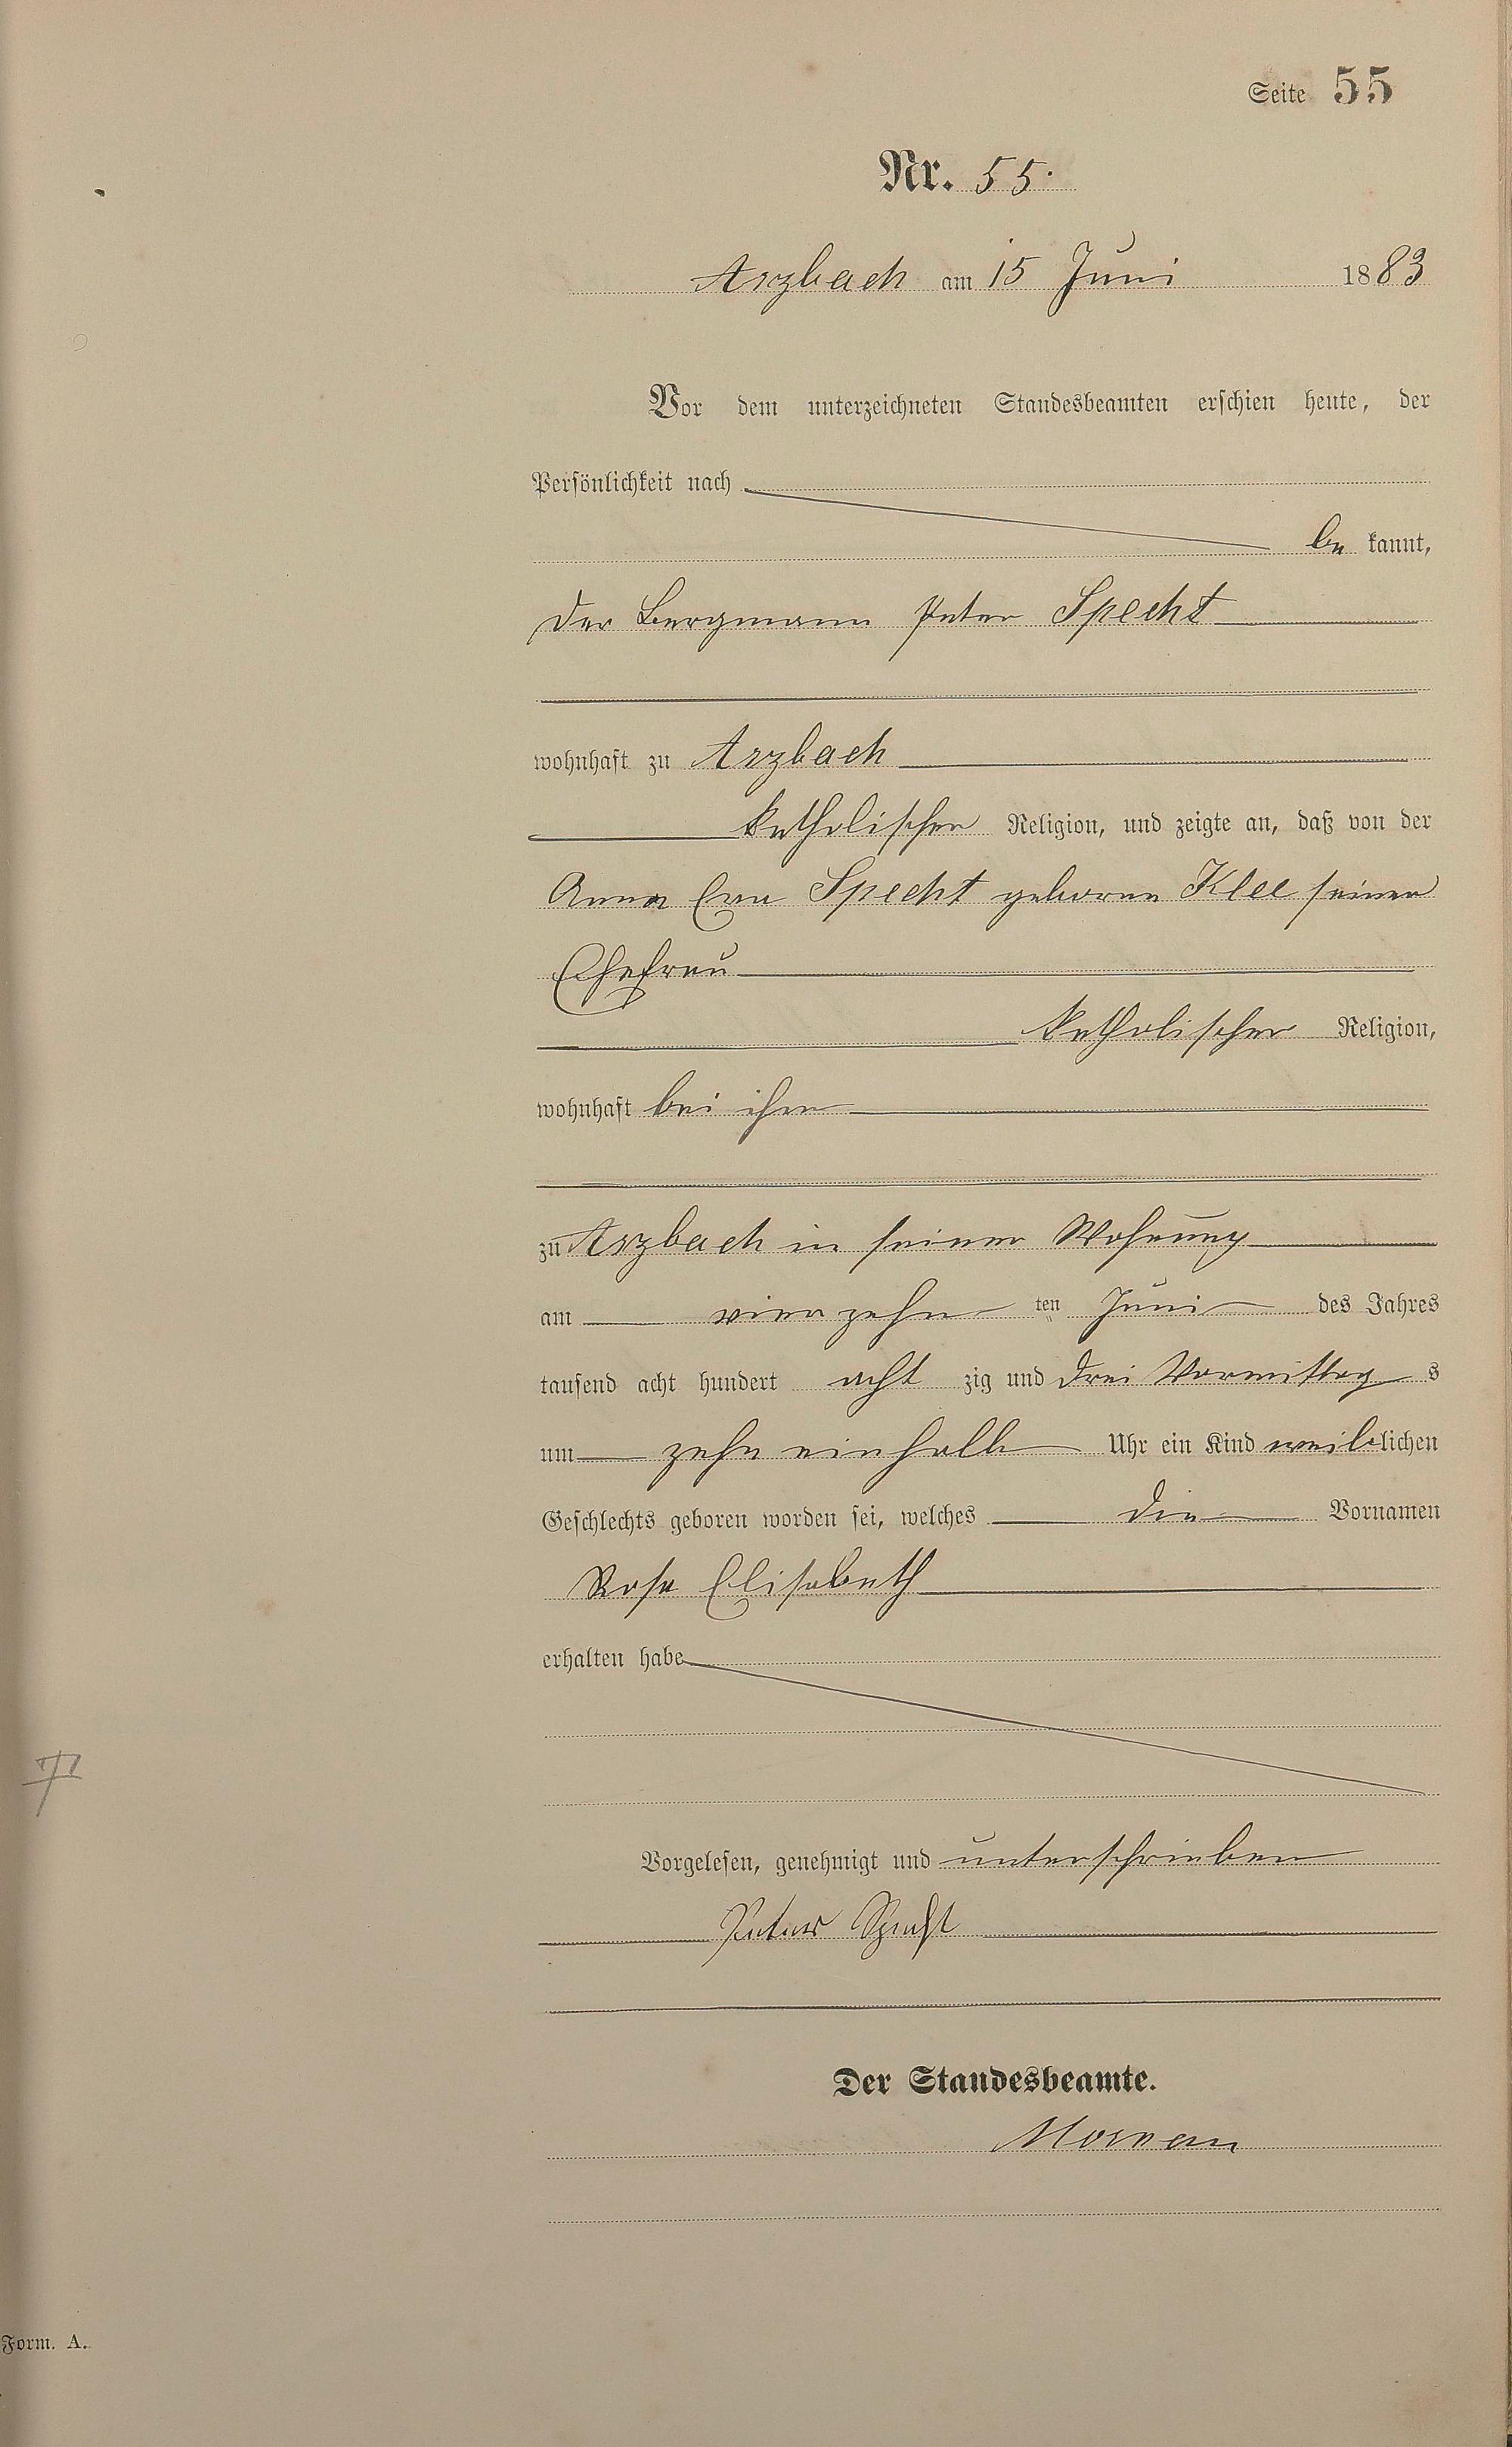 Seite 55
Nr. 55.
Arzbach am 15 Juni 1883
Vor dem unterzeichneten Standesbeamten erschien heute, der
Persönlichkeit nach
be kannt,
der Bergmann Peter Specht
wohnhaft zu Arzbach
katholischer Religion, und zeigte an, daß von der
Anna Eva Specht geborne Klee seiner
Ehefrau
katholischer Religion,
wohnhaft bei ihm
zu Arzbach in seiner Wohnung
am vierzehn ten Juni des Jahres
tausend acht hundert acht zig und drei Vormittag s
um zehn einhalb Uhr ein Kind weiblichen
Geschlechts geboren worden sei, welches die Vornamen
Rosa Elisabeth
erhalten habe
Vorgelesen, genehmigt und unterschrieben
Peter Specht
Der Standesbeamte.
Form. A.